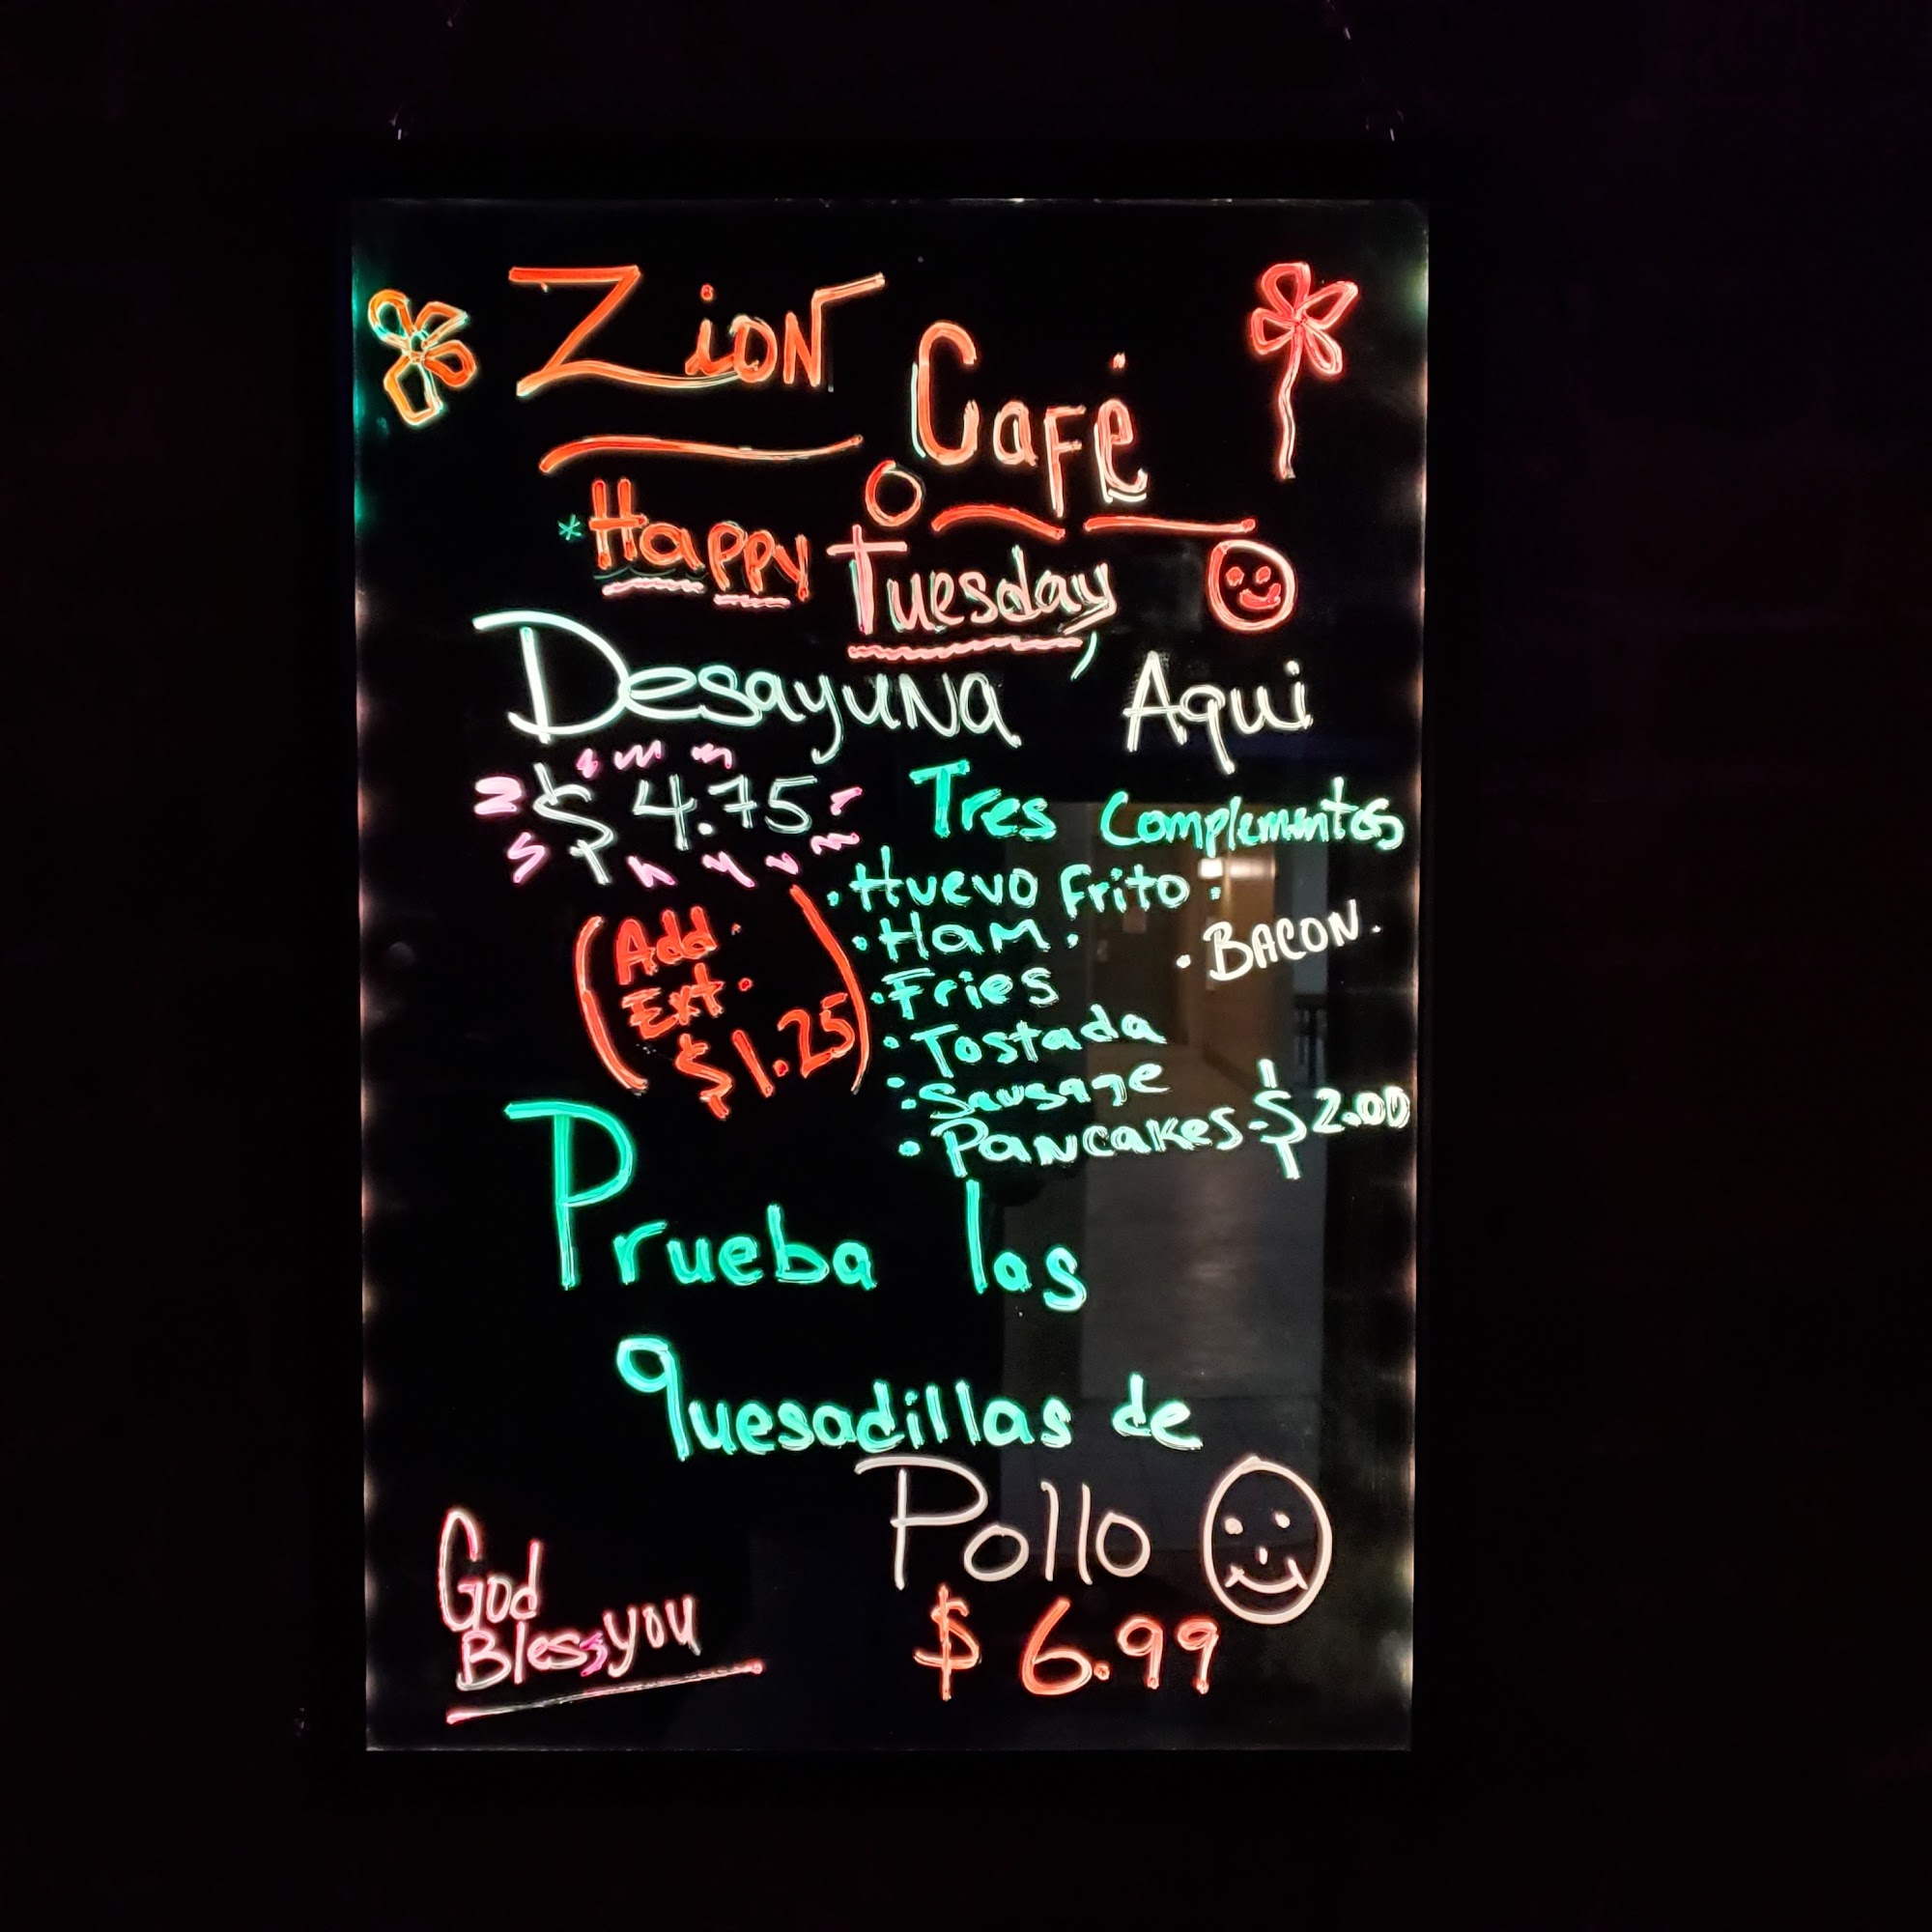 Zion Café
*Happy Tuesday
Desayuna Aqui
$ 4.75
Tres Complementos
(Add.
Ext.
$1.25)
• Huevo Frito •
• Ham •
• BACON •
• Fries
• Tostada
• Sausage
• Pancakes - $2.00
Prueba las
quesadillas de
Pollo
$ 6.99
God
Bless you